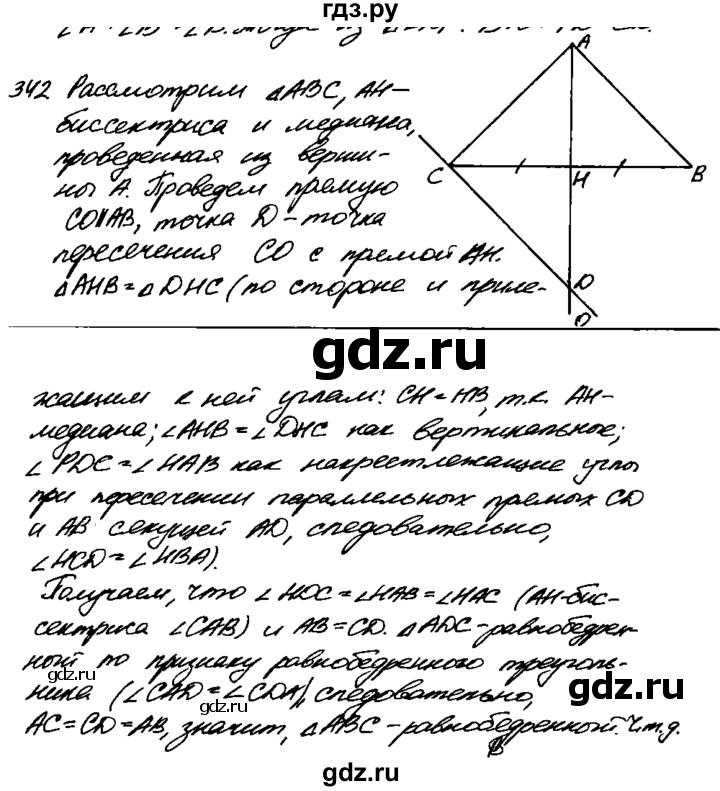 гдз.ру
342 Рассмотрим △ABC, AH-
биссектриса и медиана,
проведенная из верши-
ны A. Проведем прямую
CO∥AB, точка D - точка
пересечения CO с прямой AH.
△AHB = △DHC (по стороне и приле-
A
C
H
B
D
O
gdz.ru
жащим к ней углам: CH = HB, т.к. AH-
медиана; ∠AHB = ∠DHC как вертикальные;
∠PDC = ∠HAB как накрестлежащие углы
при пересечении параллельных прямых CD
и AB секущей AD, следовательно,
∠HCD = ∠HBA).
Получаем, что ∠HDC = ∠HAB = ∠HAC (AH-бис-
сектриса ∠CAB) и AB = CD. △ADC - равнобедрен-
ный по признаку равнобедренного треуголь-
ника (∠CAD = ∠CDA), следовательно,
AC = CD = AB, значит, △ABC - равнобедренный. Ч.т.д.
gdz.ru
gdz.ru
gdz.ru
gdz.ru